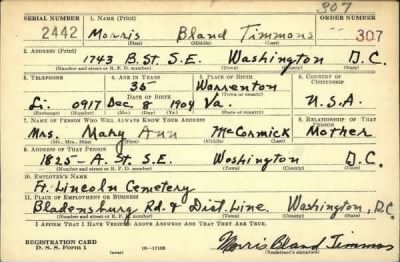 307
SERIAL NUMBER 1. NAME (Print) ORDER NUMBER
2442 Morris Bland Timmons 307
(First) (Middle) (Last)
2. ADDRESS (Print)
1743 B. St. S.E. Washington D.C.
(Number and street or R. F. D. number) (Town) (County) (State)
3. TELEPHONE 4. AGE IN YEARS 5. PLACE OF BIRTH 6. COUNTRY OF CITIZENSHIP
35 Warrenton
DATE OF BIRTH (Town or county)
Li. 0917 Dec 8 1904 Va. U.S.A.
(Exchange) (Number) (Mo.) (Day) (Yr.) (State or country)
7. NAME OF PERSON WHO WILL ALWAYS KNOW YOUR ADDRESS 8. RELATIONSHIP OF THAT PERSON
Mrs. Mary Ann McCormick Mother
(Mr., Mrs., Miss) (First) (Middle) (Last)
9. ADDRESS OF THAT PERSON
1825-A. St. S.E. Washington D.C.
(Number and street or R. F. D. number) (Town) (County) (State)
10. EMPLOYER'S NAME
Ft. Lincoln Cemetery
11. PLACE OF EMPLOYMENT OR BUSINESS
Bladensburg Rd. & Dist. Line. Washington, D.C.
(Number and street or R. F. D. number) (Town) (County) (State)
I AFFIRM THAT I HAVE VERIFIED ABOVE ANSWERS AND THAT THEY ARE TRUE.
REGISTRATION CARD
D. S. S. Form 1 (over) Morris Bland Timmons
(Registrant's signature)